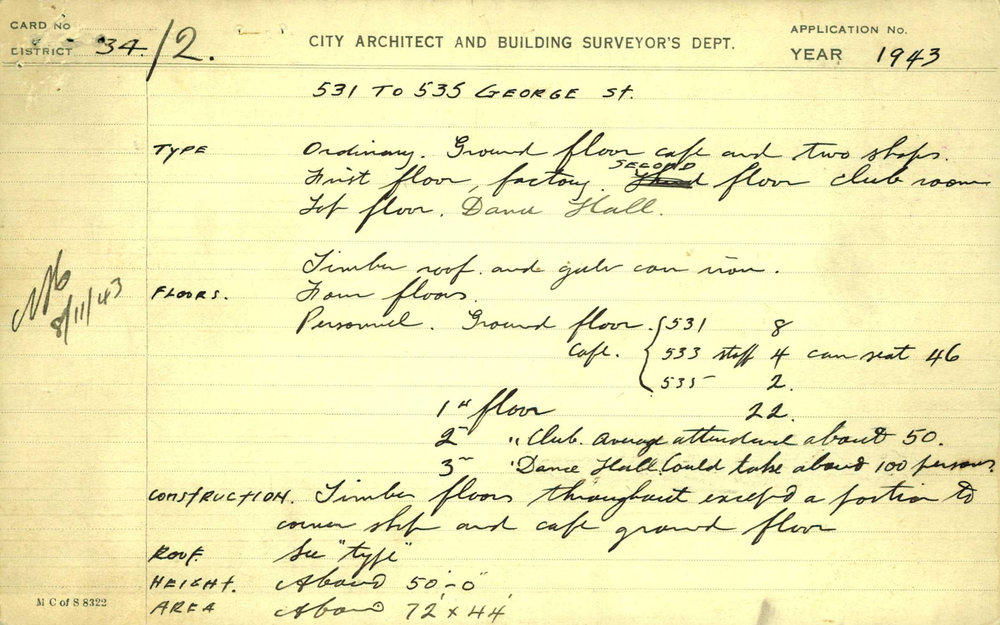 CARD NO
DISTRICT 34/2.
CITY ARCHITECT AND BUILDING SURVEYOR'S DEPT.
APPLICATION No.
YEAR 1943
531 TO 535 GEORGE St.
TYPE Ordinary. Ground floor cafe and two shops.
First floor, factory. SECOND floor club rooms
Top floor. Dance Hall.
Timber roof and galv corr iron.
8/11/43
FLOORS. Four floors.
Personnel. Ground floor. { 531 8
Cafe. 533 staff 4 can seat 46
535 2.
1st floor 22.
2nd " Club. Average attendance about 50.
3rd " Dance Hall. Could take about 100 persons.
CONSTRUCTION. Timber floors throughout except a portion to
corner shop and cafe ground floor
ROOF. See "type"
HEIGHT. About 50'-0"
AREA About 72' x 44'
M C of S 8322